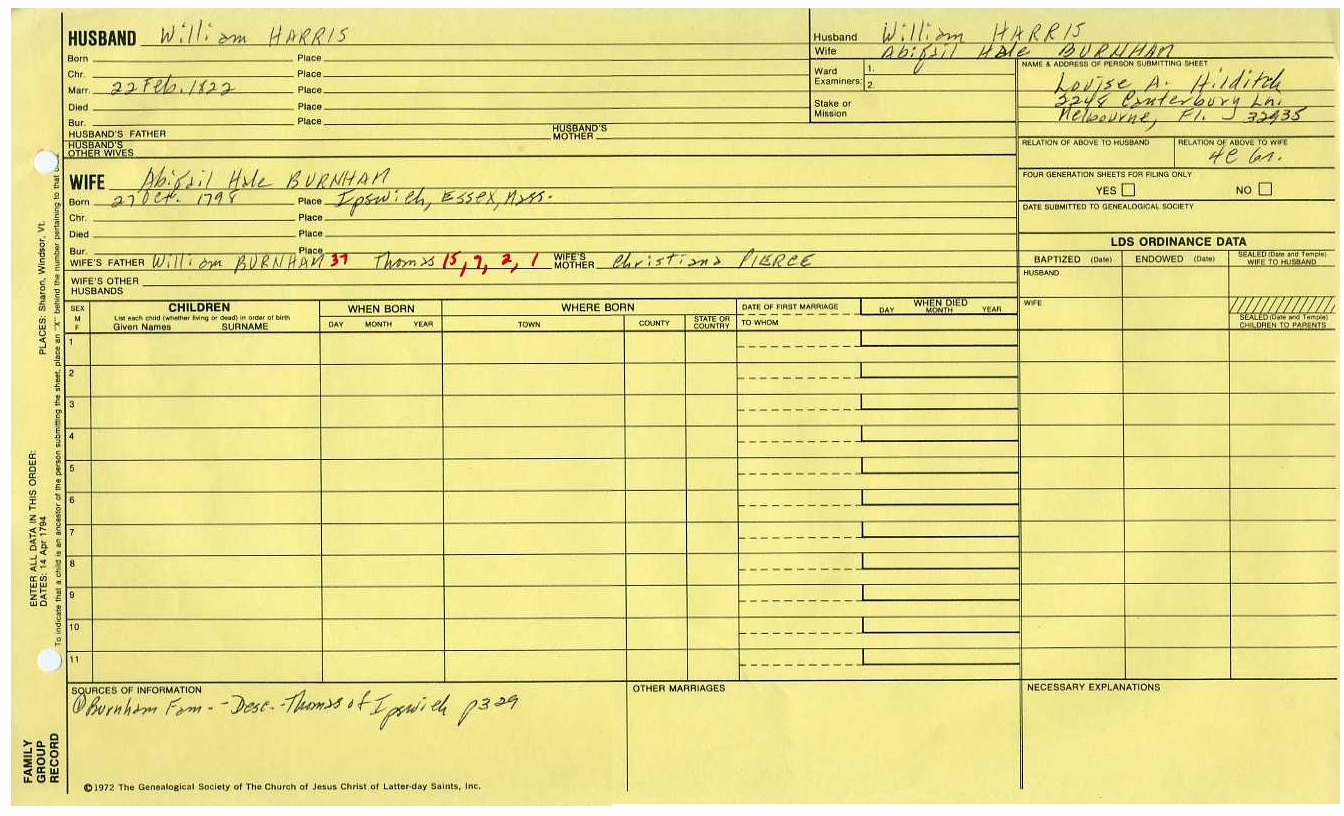 HUSBAND William HARRIS
Born Place
Chr. Place
Marr. 22 Feb. 1822 Place
Died Place
Bur. Place
HUSBAND'S FATHER HUSBAND'S MOTHER
HUSBAND'S OTHER WIVES
Husband William HARRIS
Wife Abigail Hale BURNHAM
Ward Examiners: 1. 2.
Stake or Mission
NAME & ADDRESS OF PERSON SUBMITTING SHEET
Louise A. Hilditch
2248 Canterbury Ln.
Melbourne, Fl. 32935
RELATION OF ABOVE TO HUSBAND RELATION OF ABOVE TO WIFE
4C
FOUR GENERATION SHEETS FOR FILING ONLY
YES NO
DATE SUBMITTED TO GENEALOGICAL SOCIETY
WIFE Abigail Hale BURNHAM
Born 27 Oct. 1798 Place Ipswich, Essex, Mass.
Chr. Place
Died Place
Bur. Place
WIFE'S FATHER William BURNHAM 37 Thomas 15, 7, 2, 1 WIFE'S MOTHER Christiana PIERCE
WIFE'S OTHER HUSBANDS
LDS ORDINANCE DATA
BAPTIZED (Date) ENDOWED (Date) SEALED (Date and Temple) WIFE TO HUSBAND
HUSBAND
WIFE
SEALED (Date and Temple) CHILDREN TO PARENTS
SEX M F
CHILDREN
List each child (whether living or dead) in order of birth
Given Names SURNAME
WHEN BORN
DAY MONTH YEAR
WHERE BORN
TOWN COUNTY STATE OR COUNTRY
DATE OF FIRST MARRIAGE
TO WHOM
WHEN DIED
DAY MONTH YEAR
1
2
3
4
5
6
7
8
9
10
11
SOURCES OF INFORMATION
①Burnham Fam- -Desc.-Thomas of Ipswich p329
OTHER MARRIAGES
NECESSARY EXPLANATIONS
©1972 The Genealogical Society of The Church of Jesus Christ of Latter-day Saints, Inc.
FAMILY GROUP RECORD
ENTER ALL DATA IN THIS ORDER:
DATES: 14 Apr 1794
PLACES: Sharon, Windsor, Vt.
To indicate that a child is an ancestor of the person submitting the sheet, place an "X" behind the number pertaining to that